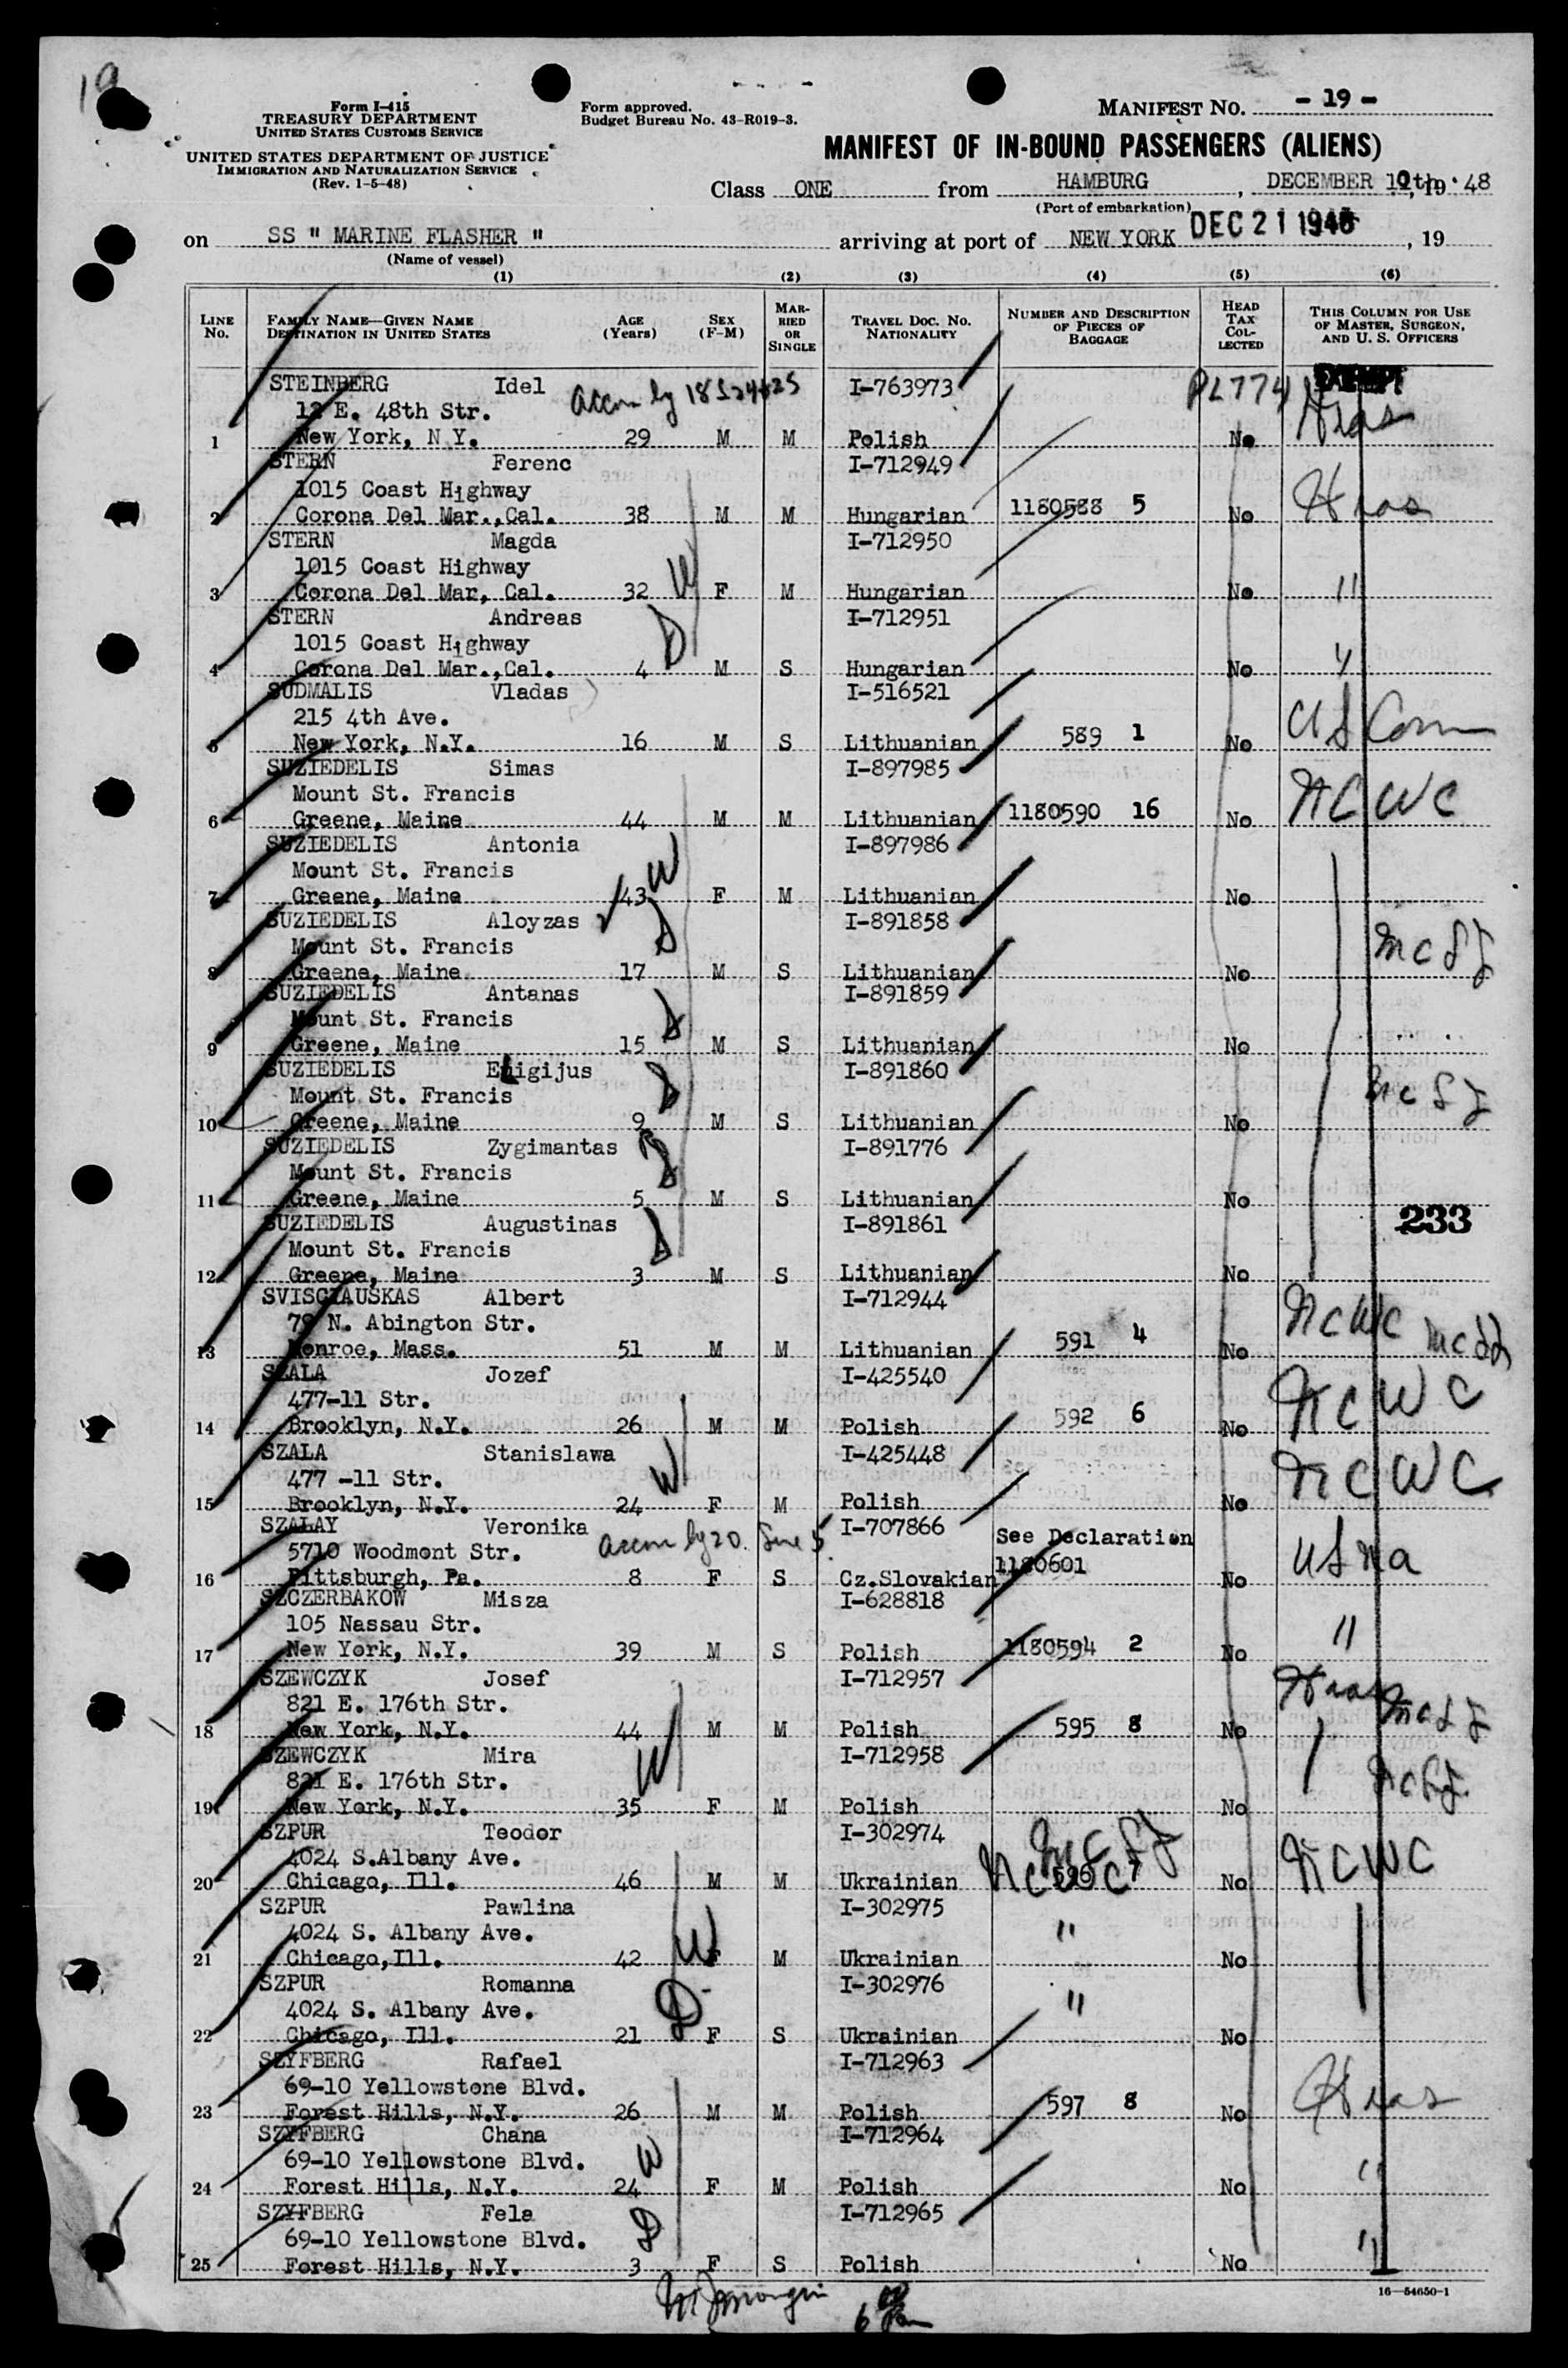 19
Form I-415
TREASURY DEPARTMENT
UNITED STATES CUSTOMS SERVICE
UNITED STATES DEPARTMENT OF JUSTICE
IMMIGRATION AND NATURALIZATION SERVICE
(Rev. 1-5-48)
Form approved.
Budget Bureau No. 43-R019-3.
MANIFEST NO. - 19 -
MANIFEST OF IN-BOUND PASSENGERS (ALIENS)
Class ONE from HAMBURG, DECEMBER 48
(Port of embarkation)
on SS " MARINE FLASHER " arriving at port of NEW YORK DEC 21 1948, 19
(Name of vessel)
(1) (2) (3) (4) (5) (6)
LINE No. FAMILY NAME—GIVEN NAME DESTINATION IN UNITED STATES AGE (Years) SEX (F-M) MARRIED OR SINGLE TRAVEL DOC. NO. NATIONALITY NUMBER AND DESCRIPTION OF PIECES OF BAGGAGE HEAD TAX COLLECTED THIS COLUMN FOR USE OF MASTER, SURGEON, AND U. S. OFFICERS
STEINBERG Idel accom by I-763973 PL774
12 E. 48th Str.
1 New York, N.Y. 29 M M Polish No Hias
STERN Ferenc I-712949
1015 Coast Highway
2 Corona Del Mar.,Cal. 38 M M Hungarian 1180588 5 No Hias
STERN Magda I-712950
1015 Coast Highway
3 Corona Del Mar, Cal. 32 W F M Hungarian No "
STERN Andreas I-712951
1015 Coast Highway
4 Corona Del Mar.,Cal. 4 D M S Hungarian No "
SUDMALIS Vladas I-516521
215 4th Ave.
5 New York, N.Y. 16 M S Lithuanian 589 1 No US Com
SUZIEDELIS Simas I-897985
Mount St. Francis
6 Greene, Maine 44 M M Lithuanian 1180590 16 No NCWC
SUZIEDELIS Antonia I-897986
Mount St. Francis
7 Greene, Maine 43 W F M Lithuanian No
SUZIEDELIS Aloyzas I-891858
Mount St. Francis
8 Greene, Maine 17 D M S Lithuanian No
SUZIEDELIS Antanas I-891859
Mount St. Francis
9 Greene, Maine 15 D M S Lithuanian No
SUZIEDELIS Eligijus I-891860
Mount St. Francis
10 Greene, Maine 9 D M S Lithuanian No
SUZIEDELIS Zygimantas I-891776
Mount St. Francis
11 Greene, Maine 5 D M S Lithuanian No
233
SUZIEDELIS Augustinas I-891861
Mount St. Francis
12 Greene, Maine 3 D M S Lithuanian No
SVISCIAUSKAS Albert I-712944
79 N. Abington Str.
13 Monroe, Mass. 51 M M Lithuanian 591 4 No NCWC
SZALA Jozef I-425540
477-11 Str.
14 Brooklyn, N.Y. 26 M M Polish 592 6 No NCWC
SZALA Stanislawa I-425448
477 -11 Str.
15 Brooklyn, N.Y. 24 W F M Polish No NCWC
SZALAY Veronika accom by 20. line 5 I-707866 See Declaration
5710 Woodmont Str. 1180601
16 Pittsburgh, Pa. 8 F S Cz.Slovakian No USNA
SZCZERBAKOW Misza I-628818
105 Nassau Str.
17 New York, N.Y. 39 M S Polish 1180594 2 No "
SZEWCZYK Josef I-712957
821 E. 176th Str.
18 New York, N.Y. 44 M M Polish 595 8 No Hias
SZEWCZYK Mira I-712958
821 E. 176th Str.
19 New York, N.Y. 35 W F M Polish No
SZPUR Teodor I-302974
4024 S.Albany Ave.
20 Chicago, Ill. 46 M M Ukrainian NCWC No NCWC
SZPUR Pawlina I-302975
4024 S. Albany Ave. "
21 Chicago,Ill. 42 W F M Ukrainian No
SZPUR Romanna I-302976
4024 S. Albany Ave. "
22 Chicago, Ill. 21 D F S Ukrainian No
SZYFBERG Rafael I-712963
69-10 Yellowstone Blvd.
23 Forest Hills, N.Y. 26 M M Polish 597 8 No Hias
SZYFBERG Chana I-712964
69-10 Yellowstone Blvd.
24 Forest Hills, N.Y. 24 W F M Polish No "
SZYFBERG Fela I-712965
69-10 Yellowstone Blvd.
25 Forest Hills, N.Y. 3 D F S Polish No "
16—54650-1